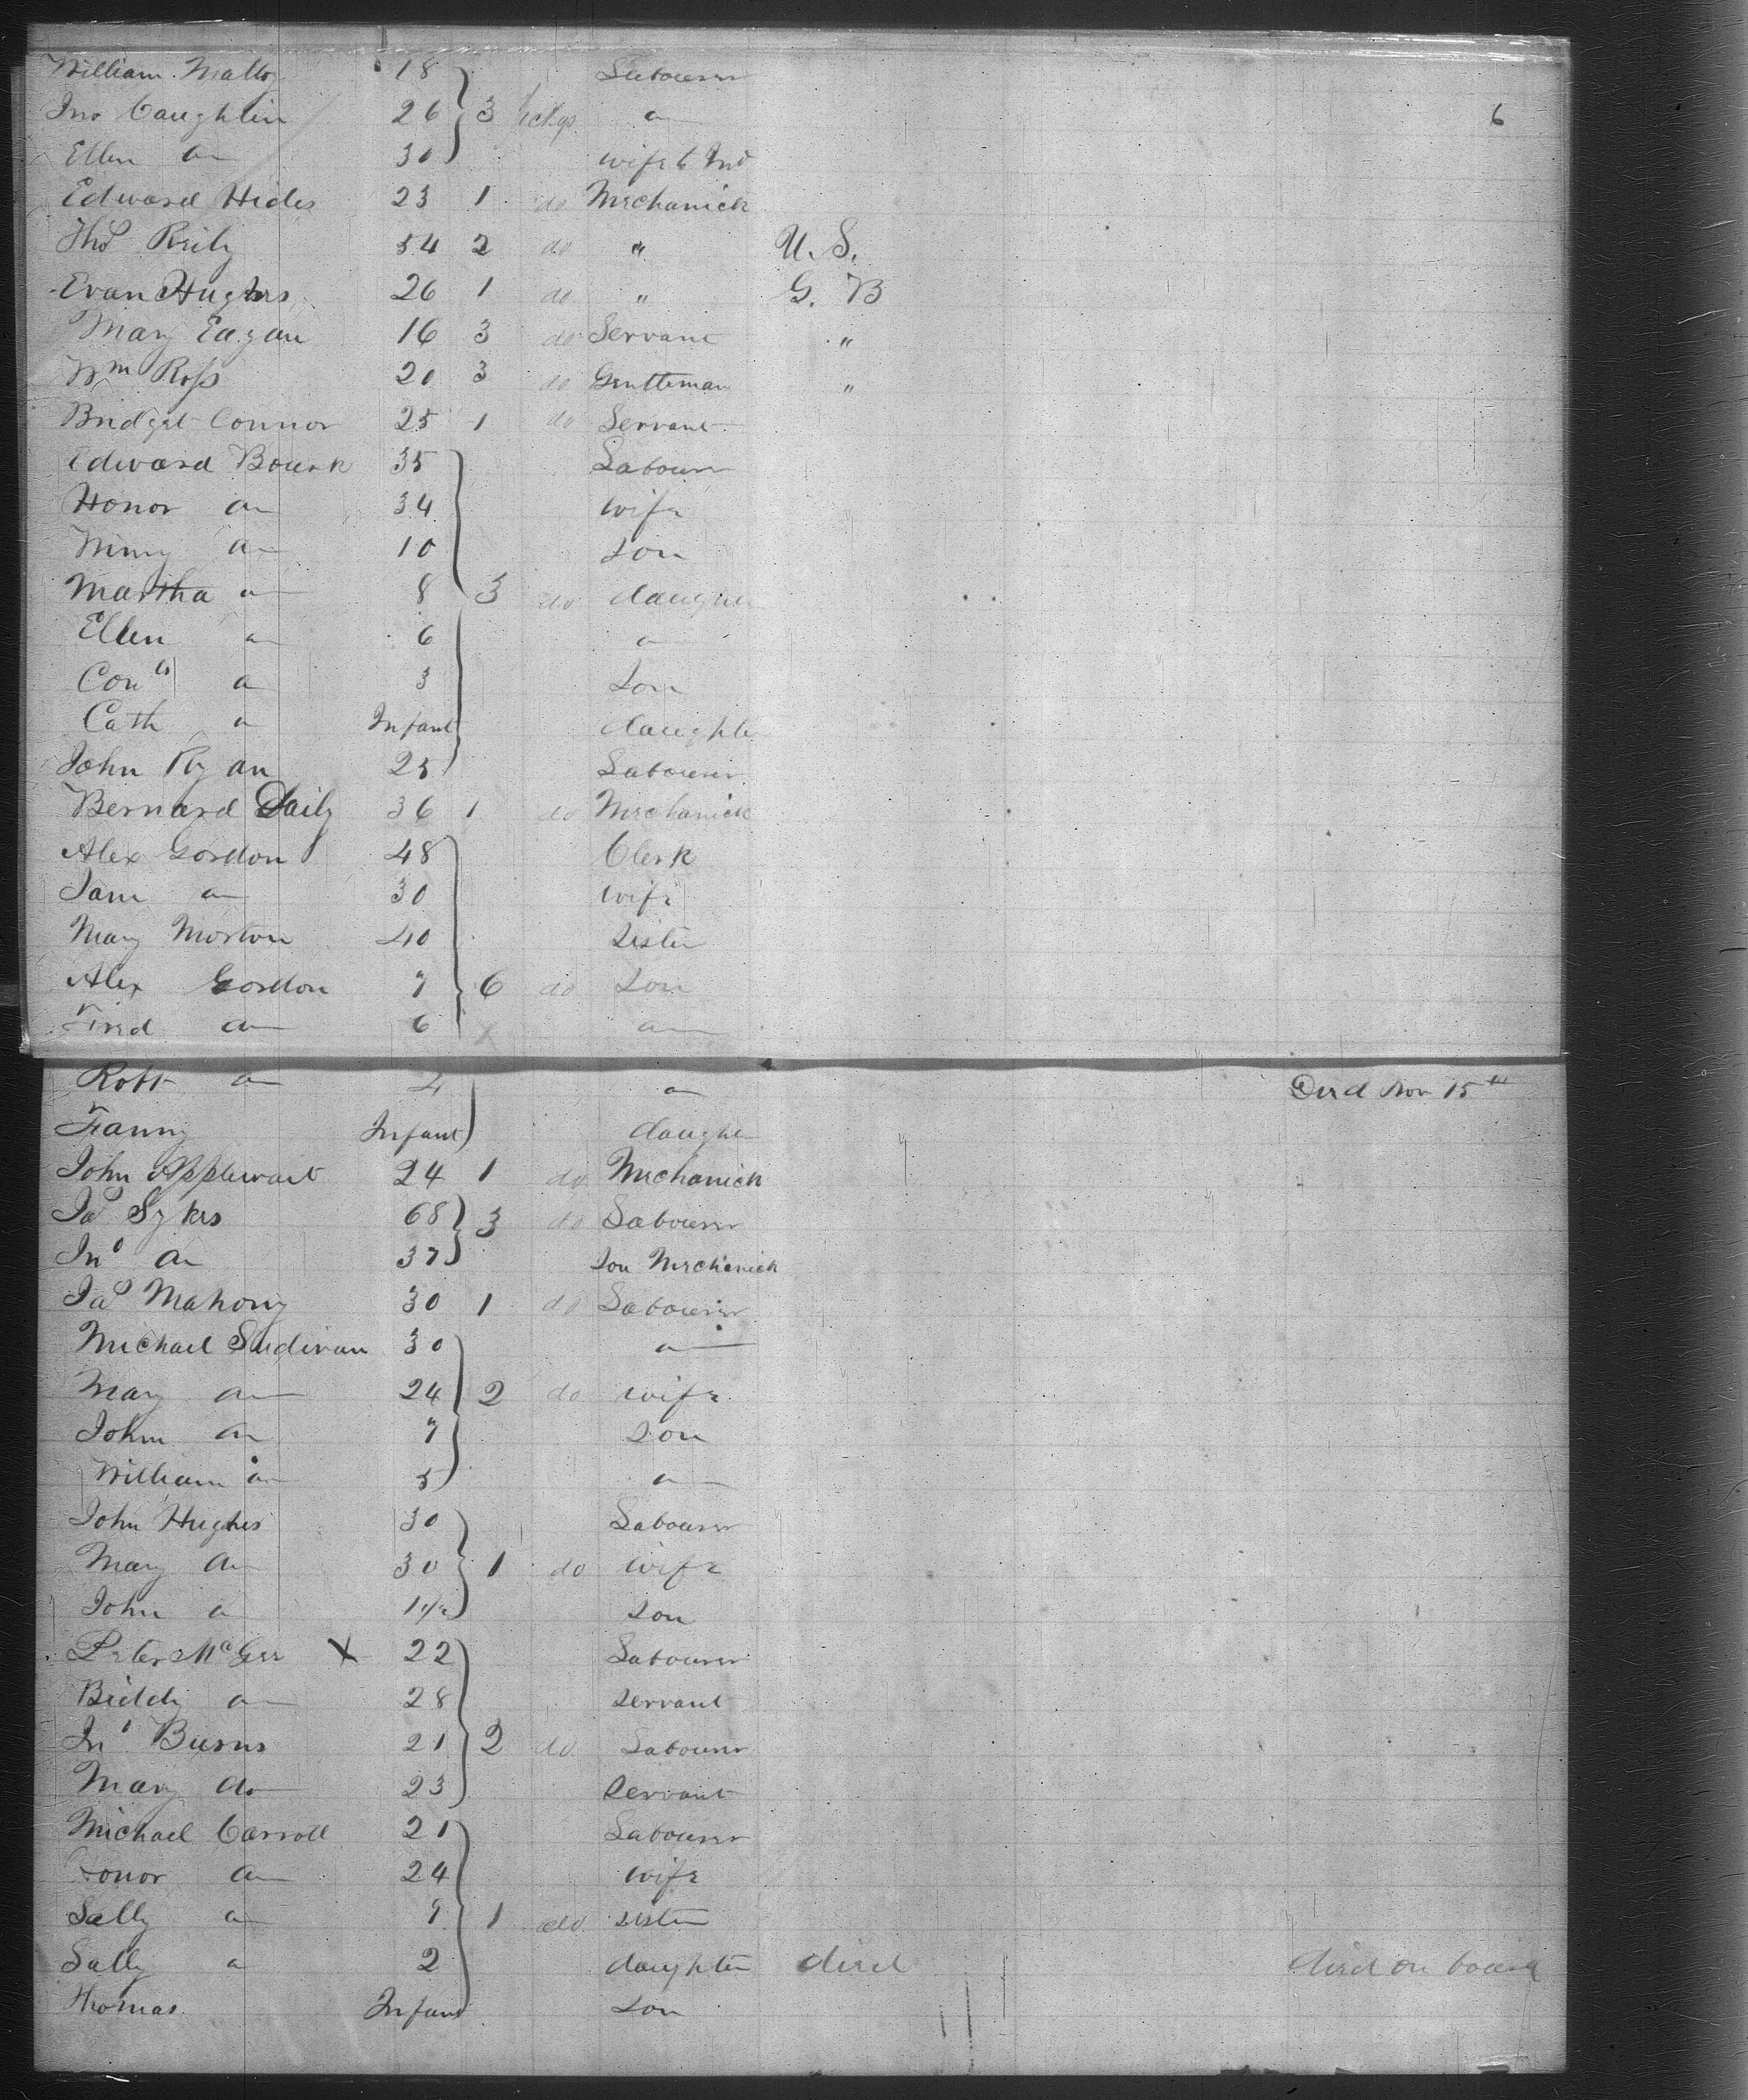 William Malloy 18 Labourer
Jno Caughlin 26 3 pckgs do 6
Ellen do 30 wife to Jno
Edward Hides 23 1 do Mechanick
Thos Reily 54 2 do " U. S.
Evan Hughes 26 1 do " G. B
Mary Eagan 16 3 do Servant "
Wm Ross 20 3 do Gentleman "
Bridget Connor 25 1 do Servant
Edward Bourk 35 Labourer
Honor do 34 wife
10 Son
Martha do 8 3 do daughter
Ellen do 6 do
do 3 Son
Cath do Infant daughter
John Ryan 25 Labourer
Bernard Daily 36 1 do Mechanick
Alex Gordon 48 Clerk
Jane do 30 wife
Mary Morton 40 Sister
Alex Gordon 7 6 do Son
Fred do 6 do
Robt do 4 do Died Nov 15th
Fanny Infant daughter
John Applewait 24 1 do Mechanick
Jas Sykes 68 3 do Labourer
Jno do 37 Son Mechanick
Jas Mahony 30 1 do Labourer
Michael Sullivan 30 do
Mary do 24 2 do wife
John do 7 Son
William do 5 do
John Hughes 30 Labourer
Mary do 30 1 do wife
John do 1 1/2 Son
Peter McGee X 22 Labourer
Biddy do 28 Servant
Jno Burns 21 2 do Labourer
Mary do 23 Servant
Michael Carroll 21 Labourer
Honor do 24 wife
Sally do 9 1 do sister
Sally do 2 daughter died died on board
Thomas Infant Son